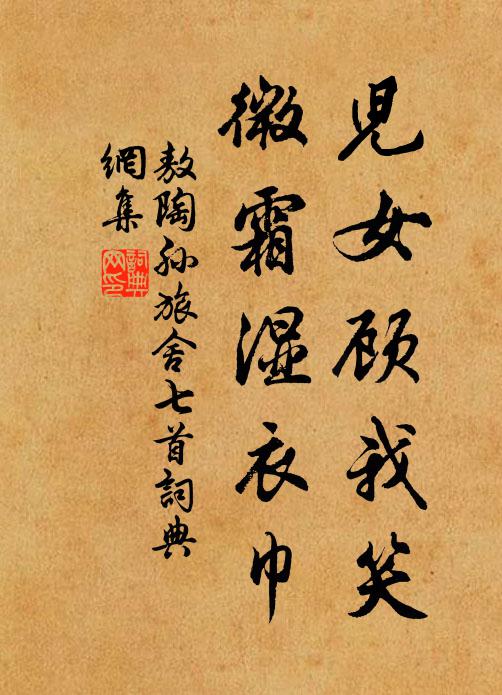 兒女顧我笑
微霜濕衣巾
敖陶孙旅舍七首詞典
網集
詞典
网印